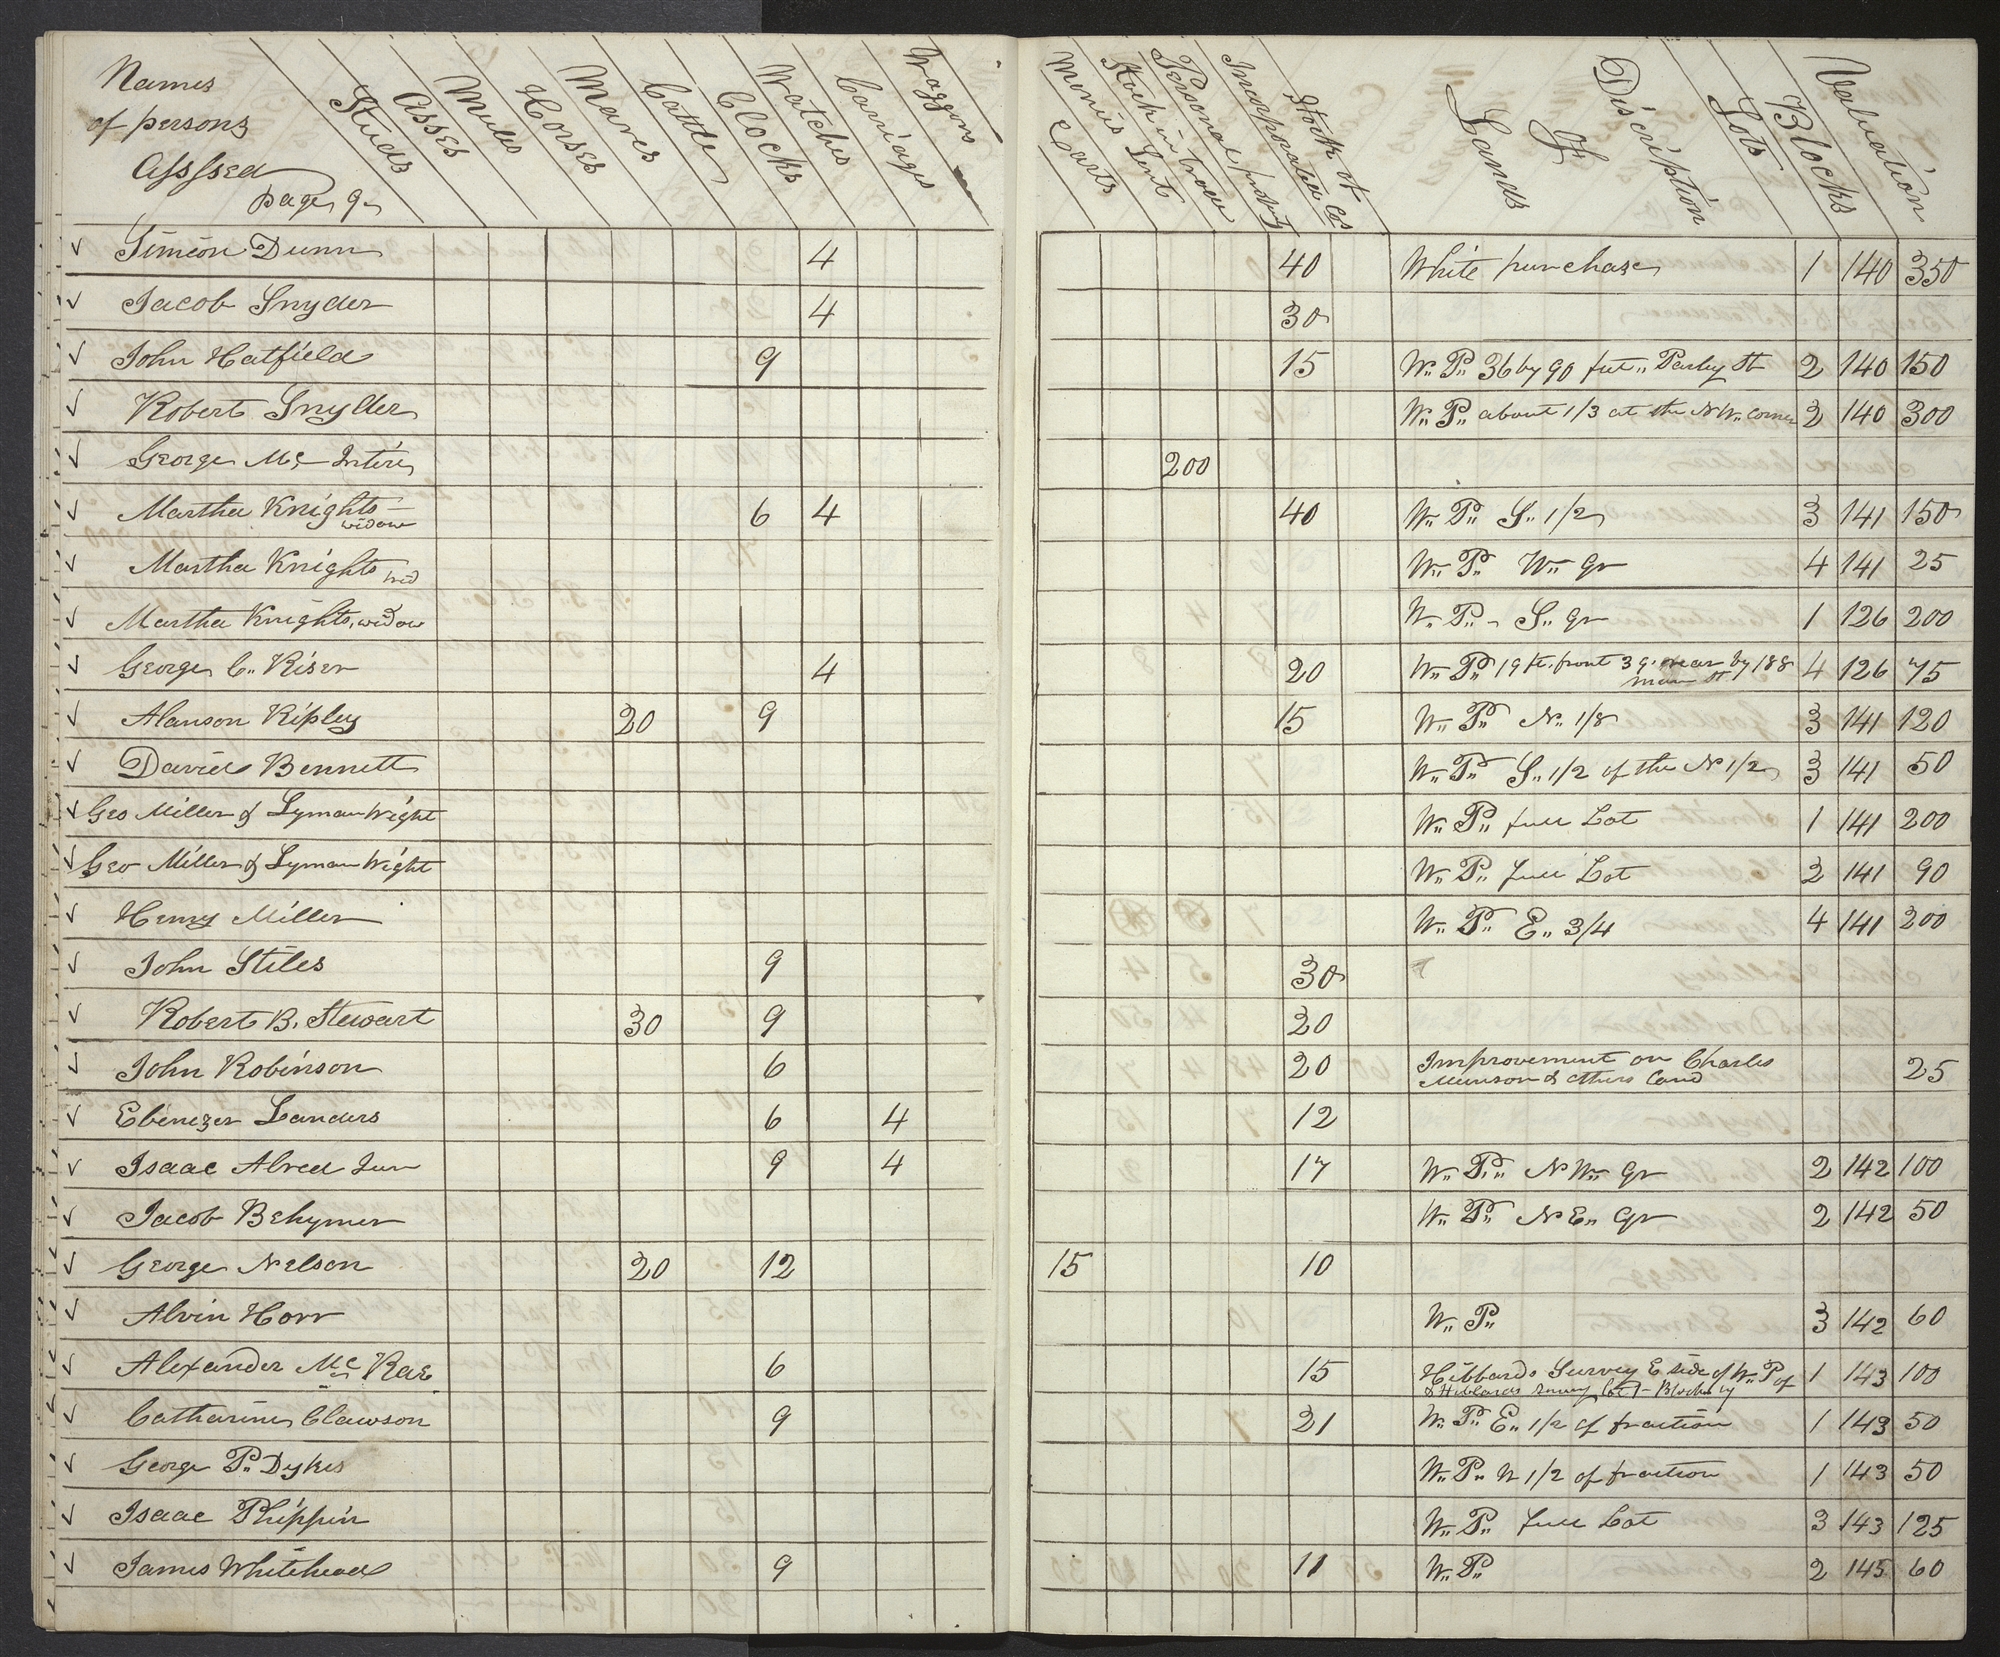 Names
of persons
Assssed
page 9
Studs
Asses
Mules
Horses
Mares
Cattle
Clocks
Watches
Carriages
Waggons
Carts
Monies Lent
Stock in trade
Personal
Stock of
Incorporated Cos
Discription
of
Lands
Lots
Blocks
Valuation
Simeon Dunn 4 40 White purchase 1 140 350
Jacob Snyder 4 30
John Hatfield 9 15 W. P. 36 by 90 feet Parley St 2 140 150
Robert Snyder W. P. about 1/3 at the N W. corner 2 140 300
George Mc Intire 200
Martha Knights widow 6 4 40 W. P. S. 1/2 3 141 150
Martha Knights wid W. P. W. qr 4 141 25
Martha Knights, widow W. P. S. qr 1 126 200
George C. Riser 4 20 W. P. 19 ft. front 39 rear by 188 4 126 75
main St
Alanson Ripley 20 9 15 W. P. N. 1/8 3 141 120
David Bennett W. P. S. 1/2 of the N 1/2 3 141 50
Geo Miller & Lyman Wight W. P. full Lot 1 141 200
Geo Miller & Lyman Wight W. P. full Lot 2 141 90
Henry Miller W. P. E. 3/4 4 141 200
John Stiles 9 30
Robert B. Stewart 30 9 20
John Robinson 6 20 Improvement on Charles 25
Munson & others land
Ebenezer Landers 6 4 12
Isaac Alred Jun 9 4 17 W. P. N W. qr 2 142 100
Jacob Behymer W. P. N E. qr 2 142 50
George Nelson 20 12 15 10
Alvin Horr W. P. 3 142 60
Alexander Mc Rae 6 15 Hibbards Survey E side of W. P of 1 143 100
& Hibbards survey Lot 1 Block
Catharine Clawson 9 21 W. P. E. 1/2 of fraction 1 143 50
George P. Dykes W. P. W 1/2 of fraction 1 143 50
Isaac Phippin W. P. full Lot 3 143 125
James Whitehead 9 11 W. P. 2 145 60